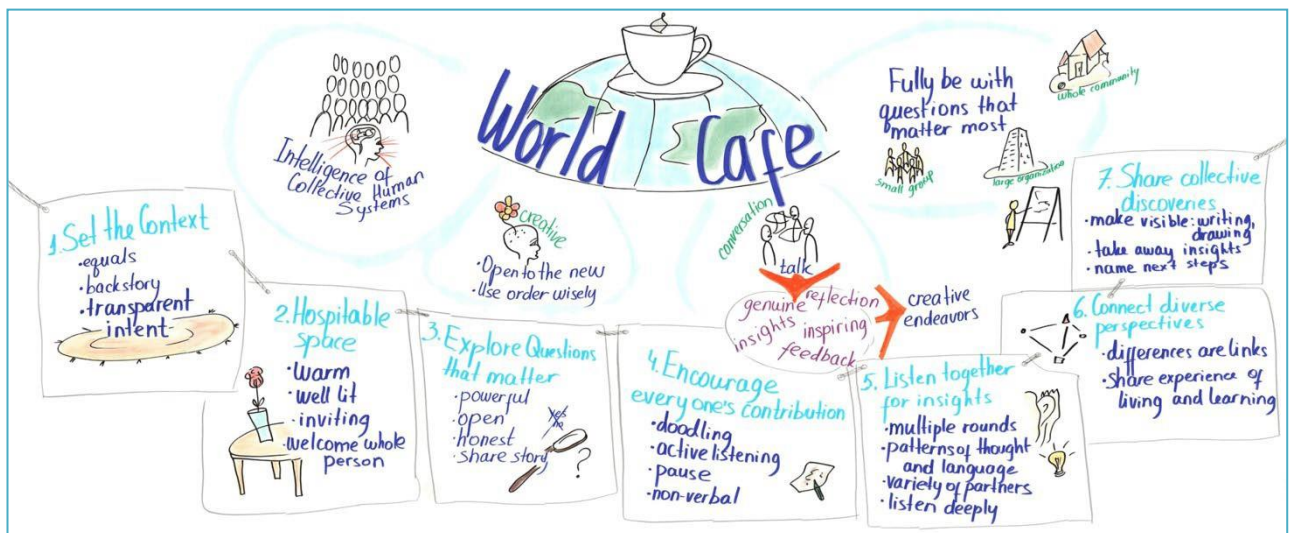 World Cafe
Intelligence of
Collective Human
Systems
creative
•Open to the new
•Use order wisely
conversation
talk
genuine reflection
insights inspiring
feedback
creative
endeavors
Fully be with
questions that
matter most
whole community
small group
large organization
1.Set the Context
•equals
•backstory
•transparent
intent
2.Hospitable
space
•warm
•well lit
•inviting
•welcome whole
person
3. Explore Questions
that matter
•powerful
•open
•honest
•share story
Yes
No
?
4. Encourage
everyone's contribution
•doodling
•active listening
•pause
•non-verbal
5. Listen together
for insights
•multiple rounds
•patterns of thought
and language
•variety of partners
•listen deeply
6. Connect diverse
perspectives
•differences are links
•Share experience of
living and learning
7. Share collective
discoveries
•make visible: writing,
drawing
•take away insights
•name next steps